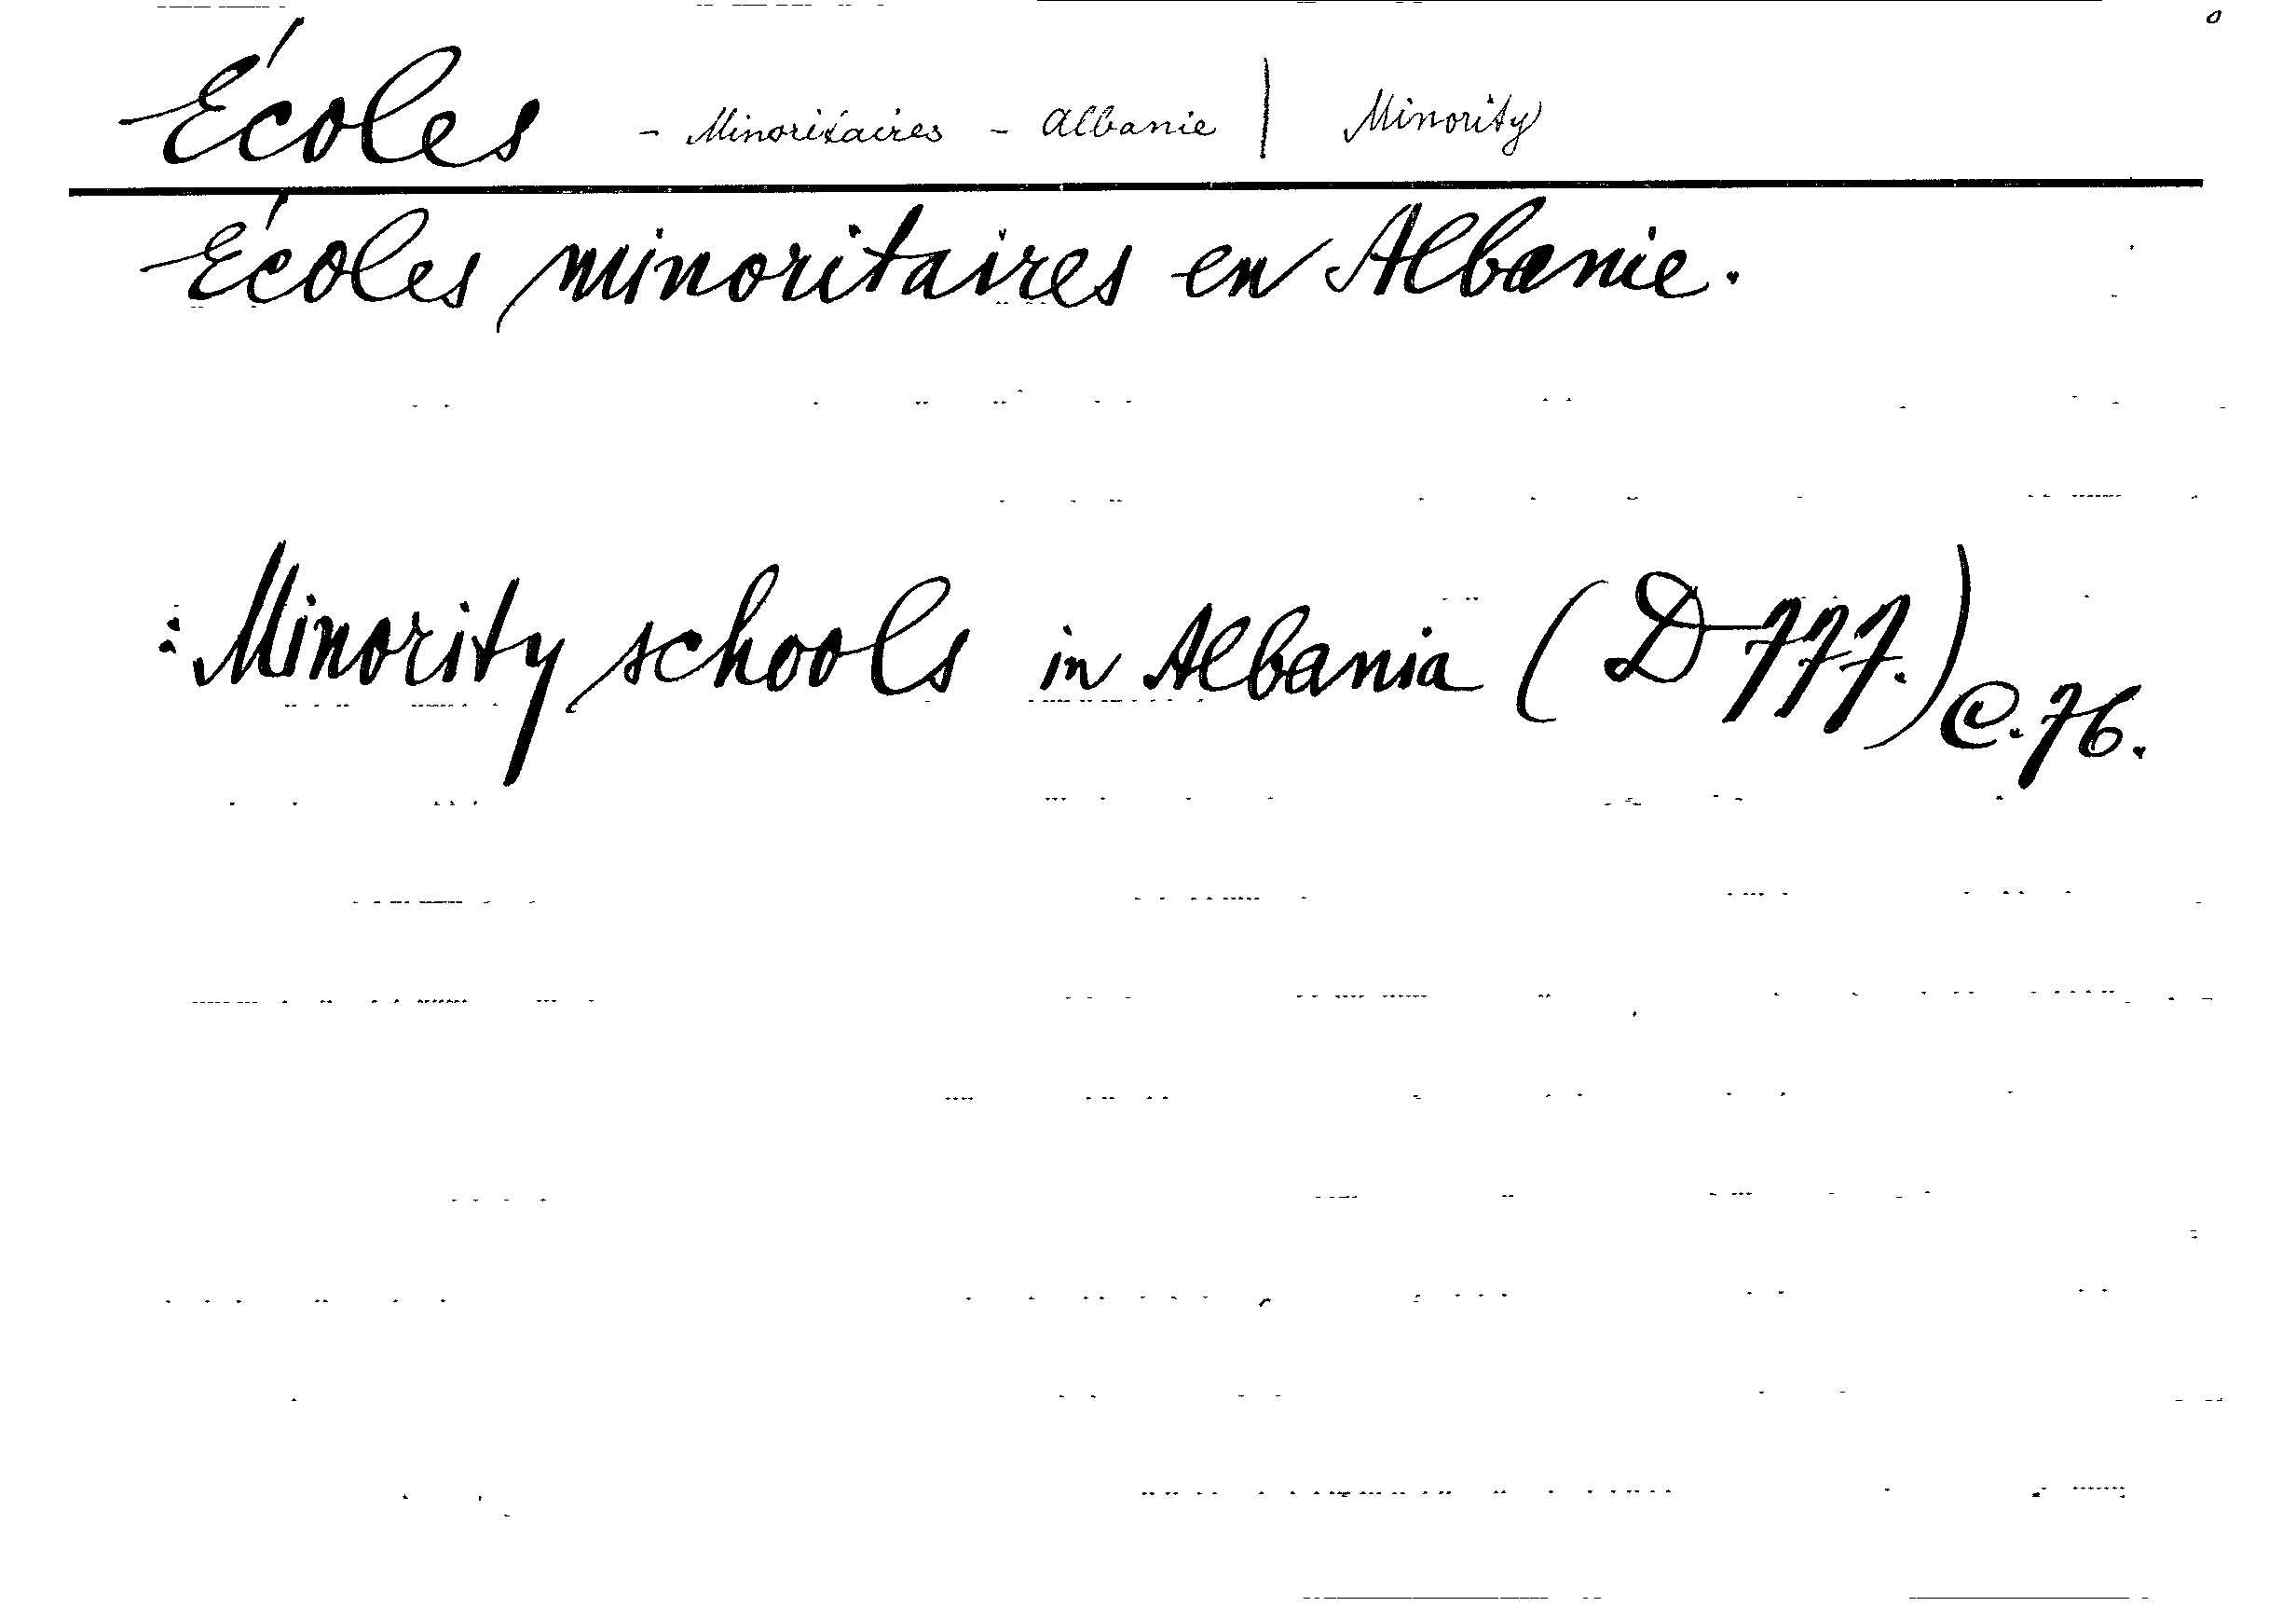 Écoles - Minoritaires - Albanie | Minority
Écoles minoritaires en Albanie.
: Minority schools in Albania (D 777.) C.76.